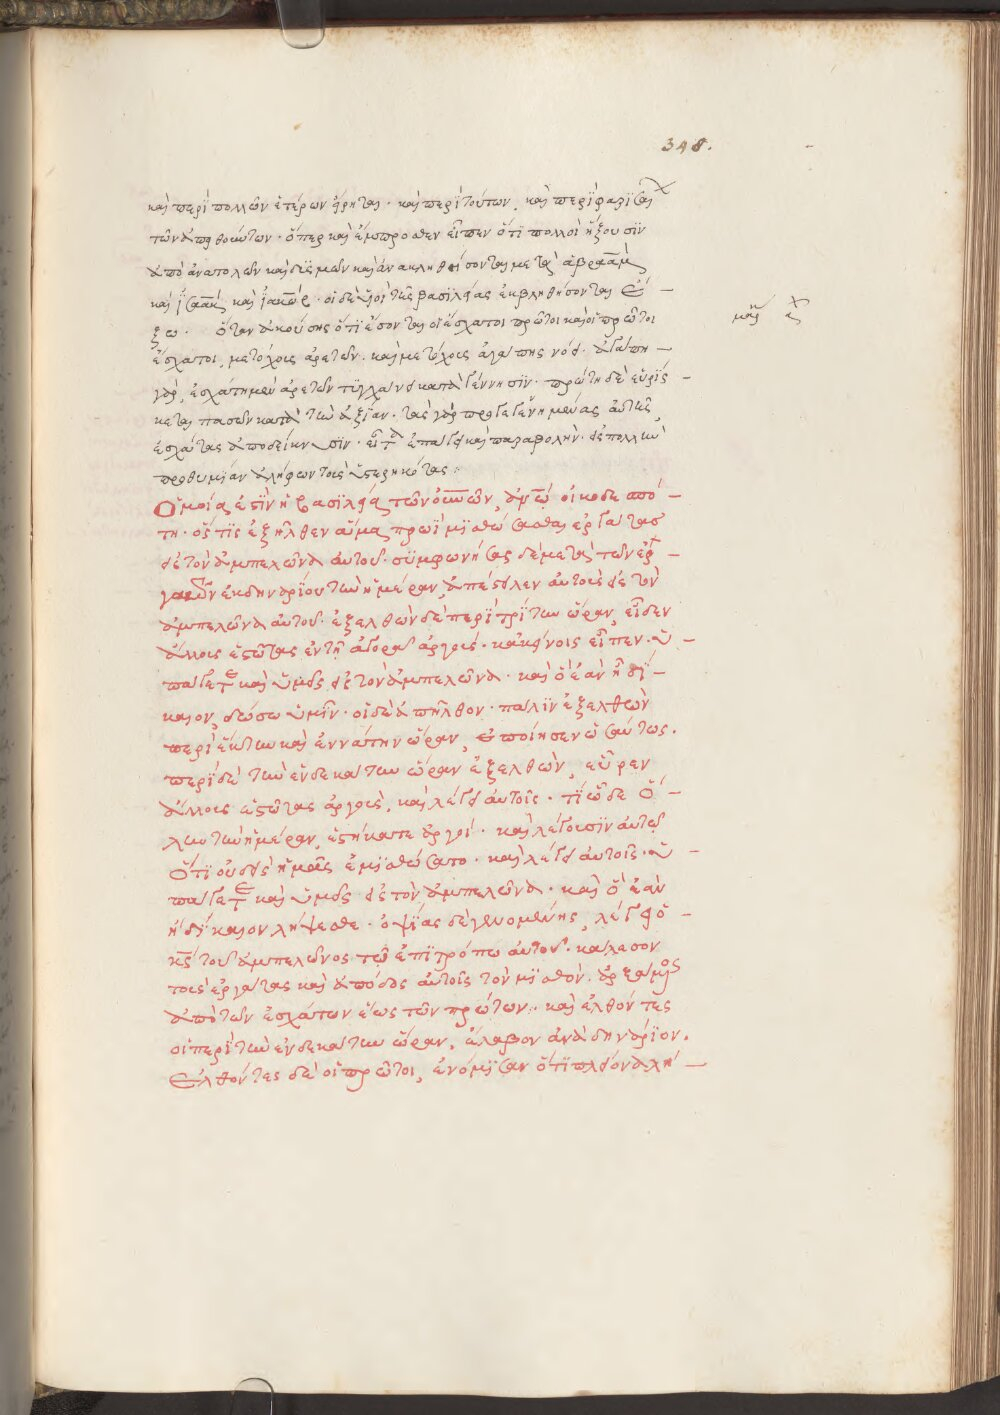 348.
καὶ περὶ πολλῶν ἑτέρων εἴρηται· καὶ περὶ τούτων, καὶ περὶ φαρισαί
των ἀπιστούντων· ὅπερ καὶ ἔμπροσθεν εἶπεν ὅτι πολλοὶ ἥξουσιν
ἀπὸ ἀνατολῶν καὶ δυσμῶν καὶ ἀνακληθήσονται μετὰ ἀβραὰμ
καὶ ἰσαὰκ καὶ ἰακώβ· οἱ δὲ υἱοὶ τῆς βασιλείας ἐκβληθήσονται ἔ –
ξω· Ὅταν ἀκούσης ὅτι ἔσονται οἱ ἔσχατοι πρῶτοι καὶ οἱ πρῶτοι
ἔσχατοι, μετόχοις ἀρετῶν· καὶ μετόχοις ἀγάπης νόει· ἀγάπη –
γὰρ, ἐσχάτη μὲν ἀρετῶν τυγχάνει κατὰ γέννησιν· πρώτη δὲ εὑρίς –
κεται πασῶν κατὰ τὴν ἀξίαν· τὰς γὰρ προγεγενημένας αὐτῆς
ἐσχάτας ἀποδείκνυσιν· εἶτα ἐπάγει καὶ παραβολὴν· εἰς πολλὴν
προθυμίαν ἀλείφων τοὺς ὑστερηκότας:
Ὁμοία ἐστὶν ἡ βασιλεία τῶν οὐνῶν, ἀνῳ οἰκοδεσπό –
τη· ὅστις ἐξῆλθεν ἅμα πρωῒ μισθώσασθαι ἐργάτας
εἰς τὸν ἀμπελῶνα αὐτοῦ· συμφωνήσας δὲ μετὰ τῶν ἐρ –
γατῶν ἐκ δηναρίου τὴν ἡμέραν, ἀπέστειλεν αὐτοὺς εἰς τὸν
ἀμπελῶνα αὐτοῦ· ἐξελθὼν δὲ περὶ τρίτην ὥραν, εἶδεν
ἄλλους ἑστῶτας ἐν τῇ ἀγορᾷ ἀργούς· κἀκείνοις εἶπεν· ὑ –
πάγετε καὶ ὑμεῖς εἰς τὸν ἀμπελῶνα· καὶ ὃ ἐὰν ἦ δί –
καιον, δώσω ὑμῖν· οἱ δὲ ἀπῆλθον· πάλιν ἐξελθὼν
περὶ ἕκτην καὶ ἐννάτην ὥραν, ἐποίησεν ὡσαύτως.
περὶ δὲ τὴν ἑνδεκάτην ὥραν ἐξελθὼν, εὗρεν
ἄλλους ἑστῶτας ἀργοὺς, καὶ λέγει αὐτοῖς· τί ὧδε ὅ –
λην τὴν ἡμέραν, ἑστήκατε ἀργοί· καὶ λέγουσιν αὐτῷ
Ὅτι οὐδεὶς ἡμᾶς ἐμισθώσατο· καὶ λέγει αὐτοῖς· ὑ –
πάγετε καὶ ὑμεῖς εἰς τὸν ἀμπελῶνα· καὶ ὃ ἐὰν
ἦ δίκαιον λήψεσθε· ὀψίας δὲ γενομένης, λέγει ὁ –
κς τοῦ ἀμπελῶνος τῷ ἐπιτρόπω αὐτοῦ· κάλεσον
τοὺς ἐργάτας καὶ ἀπόδος αὐτοῖς τὸν μισθόν· ἀρξάμενος
ἀπὸ τῶν ἐσχάτων ἕως τῶν πρώτων· καὶ ἐλθόντες
οἱ περὶ τὴν ἑνδεκάτην ὥραν, ἔλαβον ἀνὰ δηνάριον.
Ἐλθόντες δὲ οἱ πρῶτοι, ἐνόμισαν ὅτι πλείονα λή –